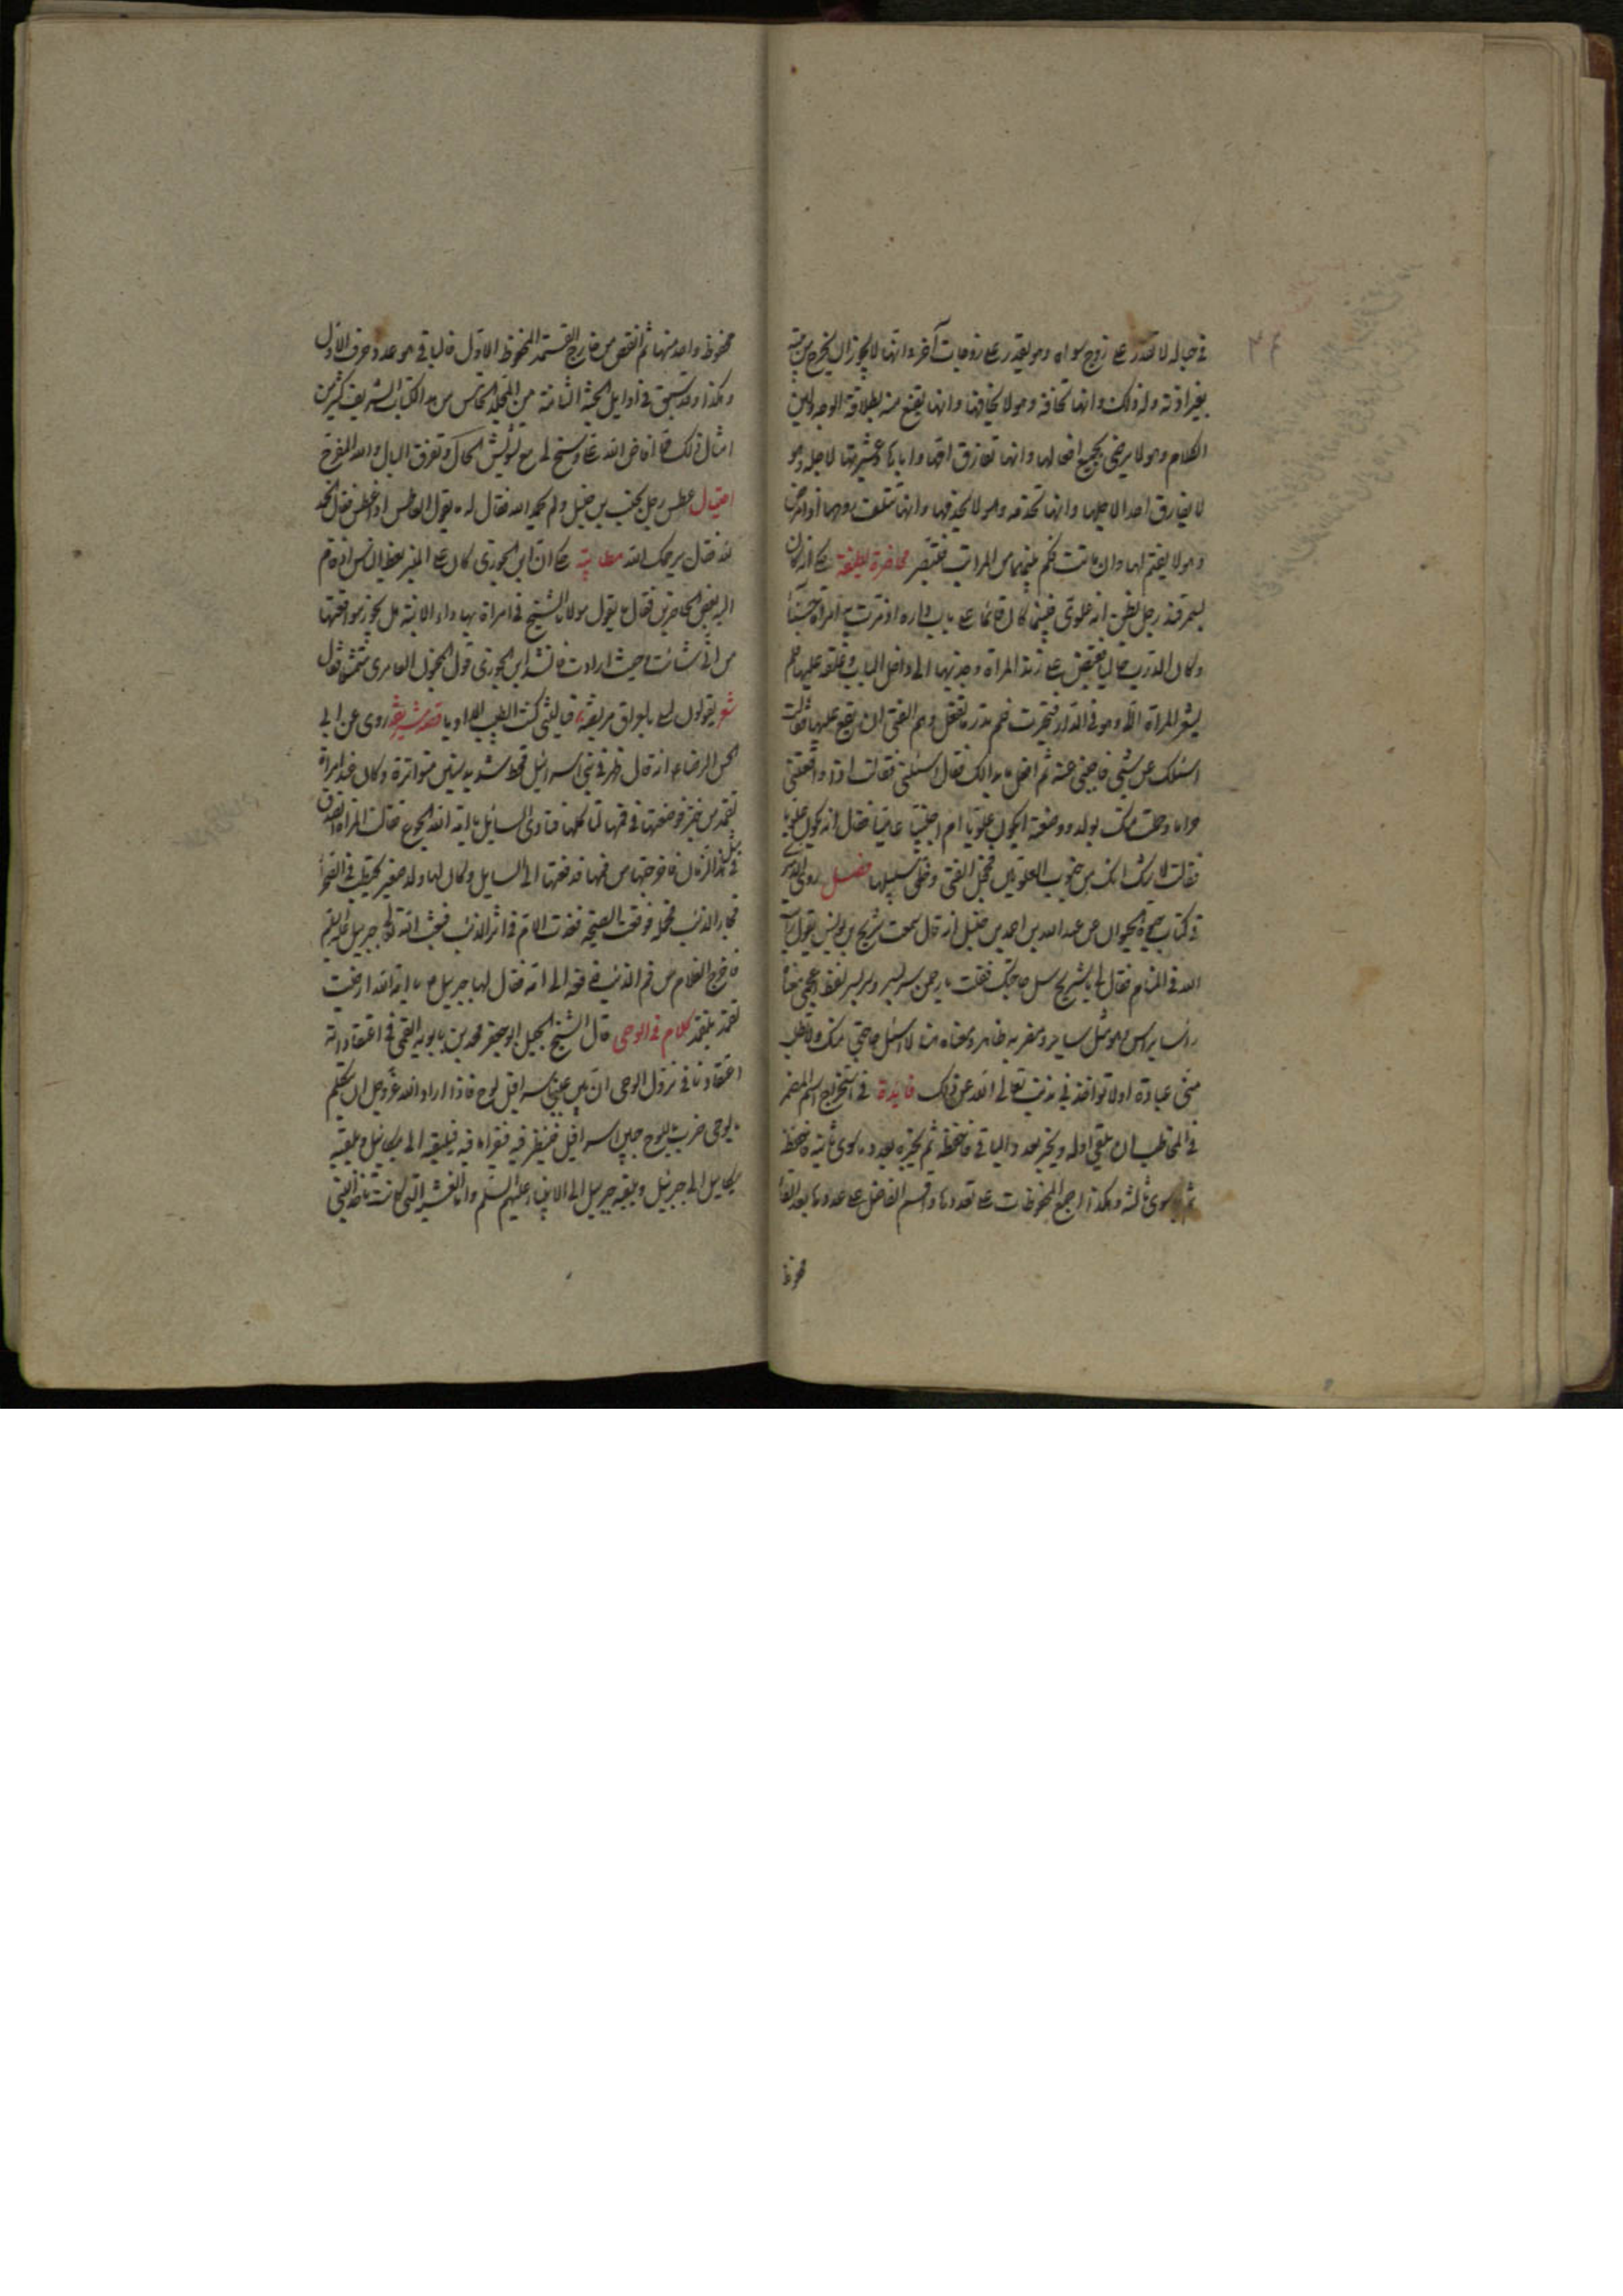 في حباله لا تقدر على زوج سواه وهو يقدر على زوجات آخر وانها لا يجوز ان يخرج من بيته
بغير اذنه وله ذلك وانها تخافه وهو لا يخافها وانها تقنع منه بطلاقة الوجه ولين
الكلام وهو لا يرضى بجميع افعالها وانها تفارق امها واباها وعشيرتها لاجله وهو
لا يفارق احدا لاجلها وانها تخدمه وهو لا يخدمها وانها تتلف نفسها اذا مرض
وهو لا يغتم لها وان ماتت فكم بينهما من المراتب فتبصر محاضرة لطيفة حكي انه كان
بسمرقند رجل يظن انه علوي فبينما كان قائما على باب داره اذ مرت به امراة حسناء
وكان الدرب خاليا فقبض على زند المراة وجذبها الى داخل الباب وغلقه عليها فلم
يشعر المراة الا وهو في الدار فتحيرت فلم تدر ما تفعل وهم الفتى ان يقع عليها فقالت
اسئلك عن شيء فاجبني عنه ثم افعل ما بدا لك فقال اسئلي فقالت اذا واقعتني
حراما وحملت منك بولد ووضعته ايكون علويا ام اجنبيا عاميا فقال انه يكون علويا
فقالت لا شك انك من ضروب العلويين فخجل الفتى وخلى سبيلها فصل روى الدميري
في كتاب حيوة الحيوان عن عبد الله بن احمد بن حنبل انه قال سمعت شريح بن يونس يقول رايت
الله في المنام فقال لي يا شريح سل حاجتك فقلت يا رحمن سر بسر وسر بسر لفظ عجمي معناه
راسا براس وهو مثل ساير ومغربه ظاهر ومعناه هنا لا اسئل حاجتي منك ولا تطلب
مني عبادة اولا تؤاخذني بذنب تعالى الله عن ذلك فايدة في استخراج اسم المضمر
في المخاطب ان يلقي اوله ويخبر بعدد الباقي فاحفظه ثم يخبره بعدد ما سوى ثانيه فاحفظه
ثم ما سوى ثالثه وهكذا اجمع المحفوظات على تعددها واقسم الحاصل على عددها بعد القاء
محفوظ
محفوظ واحد منها ثم انقص من خارج القسمة المحفوظ الاول فالباقي هو عدد حرف الاول
وهكذا وقد سبق في اوايل الجنة الثامنة من المجلد الخامس من هذا الكتاب الشريف كثير من
امثال ذلك مما افاض الله تعالى وسنح لي مع تشويش الحال وتفرق البال والله المفرج
احتيال عطس رجل بجنب بن حنبل ولم يحمد الله فقال له ما يقول العاطس اذا عطس فقال الحمد
لله فقال يرحمك الله مطايبة حكي ان ابن الجوزي كان على المنبر يعظ الناس اذ قام
اليه بعض الحاضرين فقال ما يقول مولانا الشيخ في امراة بها داء الابنة هل يجوز مواقعتها
من اني شائت وحيث ارادت فانشد ابن الجوزي قول المجنون العامري متمثلا فقال
شعر يقولون ليلى بالعراق مريضة فيا ليتني كنت الطبيب المداويا قصة شريفة روى عن ابي
الحسن الرضا ع انه قال ظهر في بني اسرائيل قحط شديد سنين متواترة وكان عند امراة
لقمة من خبز فوضعتها في فمها لتاكلها فنادى السائل يا امة الله الجوع فقالت المراة اتصدق
في مثل هذا الزمان فاخرجتها من فيها فدفعتها الى السايل وكان لها ولد صغير يحتطب في الصحراء
فجاء الذئب فحمله فوقعت الصيحة فغدت الام في اثر الذئب فبعث الله تعالى جبرئيل عليه السلم
فاخرج الغلام من فم الذئب فدفعه الى امه فقال لها جبرئيل ع يا امة الله ارضيت
لقمة بلقمة كلام في الوحي قال الشيخ الجليل ابو جعفر محمد بن بابويه القمي في اعتقاداته
اعتقادنا في نزول الوحي ان بين عيني اسرافيل لوح فاذا اراد الله عز وجل ان يتكلم
بالوحي ضرب اللوح جبين اسرافيل فينظر فيه فيقرا ما فيه فيلقيه الى ميكائيل ويلقيه
ميكائيل الى جبرئيل ويلقيه جبرئيل الى الانبياء عليهم السلم واما الغشية التي كانت تاخذ النبي